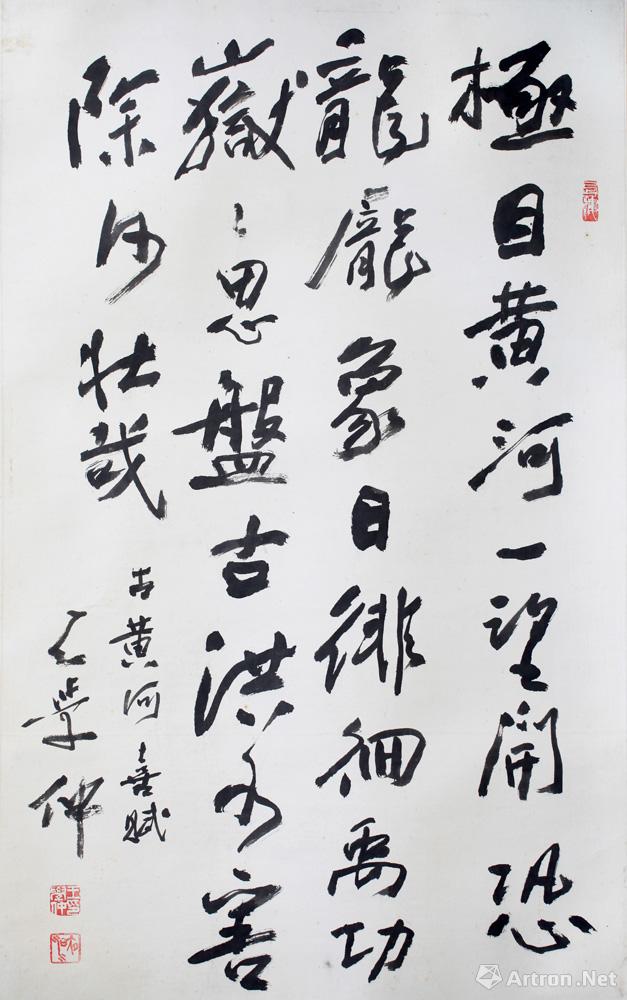 極目黄河一望開恐
龍龐象日徘徊禹功
嶽〻思盤古洪水害
除何壯哉
古黄河喜賦
王學仲
Artron.Net